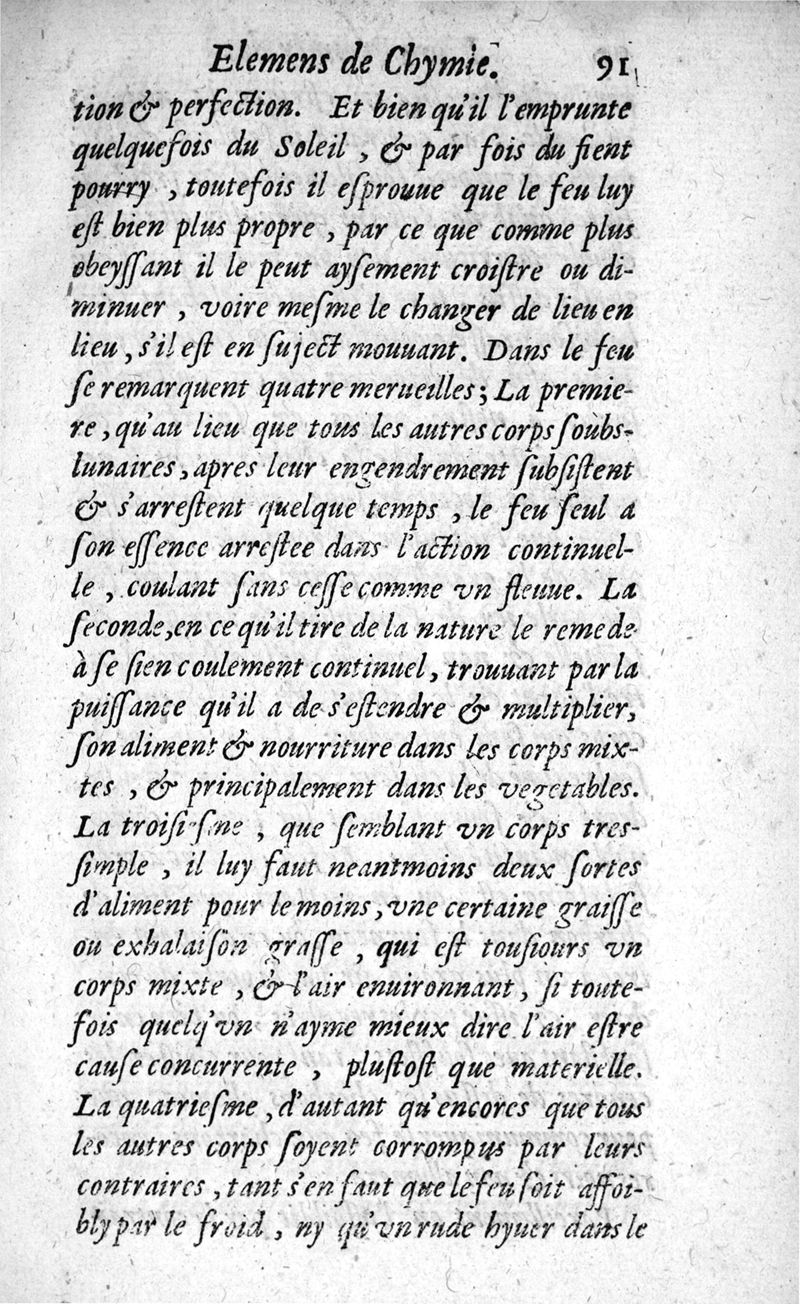 Elemens de Chymie. 91
tion & perfection. Et bien qu'il l'emprunte
quelquefois du Soleil , & par fois du fient
pourry , toutefois il eſprouue que le feu luy
eſt bien plus propre , par ce que comme plus
obeyſſant il le peut ayſement croiſtre ou di-
minuer , voire meſme le changer de lieu en
lieu , s'il eſt en ſuject mouuant. Dans le feu
ſe remarquent quatre merueilles ; La premie-
re , qu'au lieu que tous les autres corps ſoubs-
lunaires , apres leur engendrement ſubſiſtent
& s'arreſtent quelque temps , le feu ſeul a
ſon eſſence arreſtee dans l'action continuel-
le , coulant ſans ceſſe comme vn fleuue. La
ſeconde, en ce qu'il tire de la nature le remede
à ſe ſien coulement continuel , trouuant par la
puiſſance qu'il a de s'eſtendre & multiplier,
ſon aliment & nourriture dans les corps mix-
tes , & principalement dans les vegetables.
La troiſieſme , que ſemblant vn corps tres-
ſimple , il luy faut neantmoins deux ſortes
d'aliment pour le moins , vne certaine graiſſe
ou exhalaiſon graſſe , qui eſt touſiours vn
corps mixte , & l'air enuironnant , ſi toute-
fois quelq'vn n'ayme mieux dire l'air eſtre
cauſe concurrente , pluſtoſt que materielle.
La quatrieſme , d'autant qu'encores que tous
les autres corps ſoyent corrompus par leurs
contraires , tant s'en faut que le feu ſoit affoi-
bly par le froid , ny qu'vn rude hyuer dans le